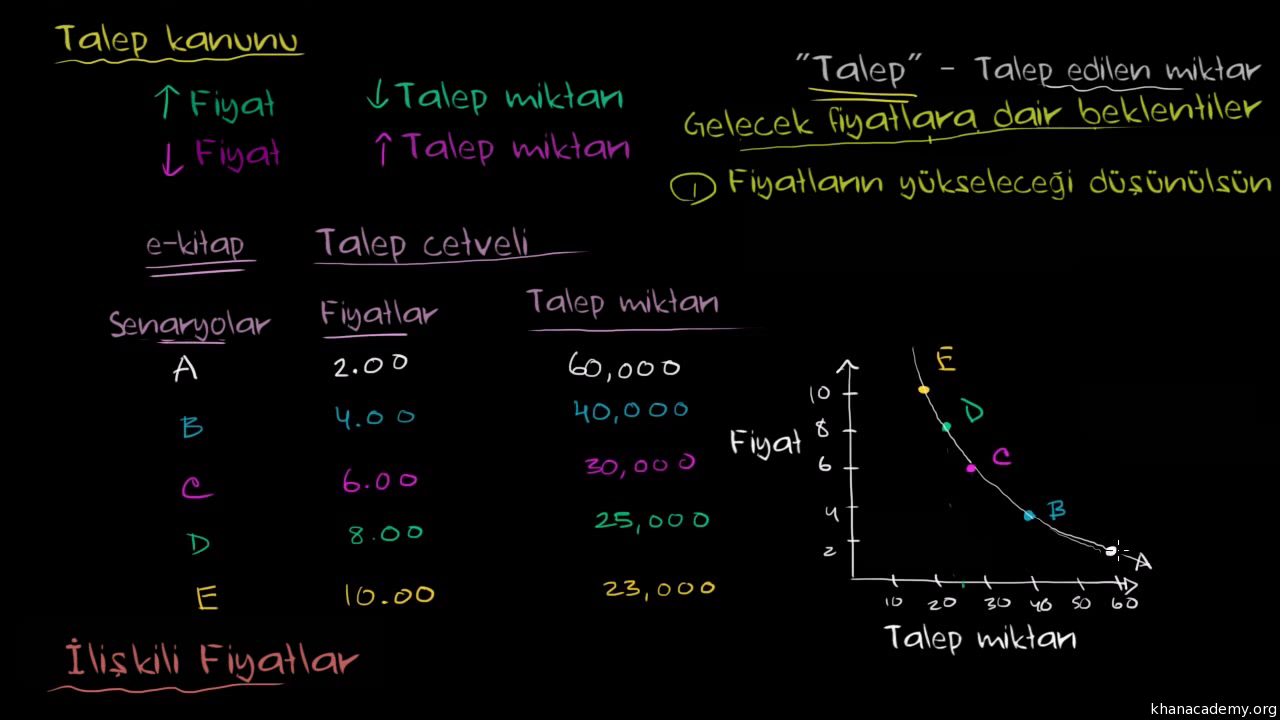 Talep kanunu
↑ Fiyat ↓ Talep miktarı
↓ Fiyat ↑ Talep miktarı
"Talep" - Talep edilen miktar
Gelecek fiyatlara dair beklentiler
1 Fiyatların yükseleceği düşünülsün
e-kitap Talep cetveli
Senaryolar Fiyatlar Talep miktarı
A 2.00 60,000
B 4.00 40,000
C 6.00 30,000
D 8.00 25,000
E 10.00 23,000
İlişkili Fiyatlar
E
10
D
Fiyat 8
C
6
4 B
2 A
10 20 30 40 50 60
Talep miktarı
khanacademy.org